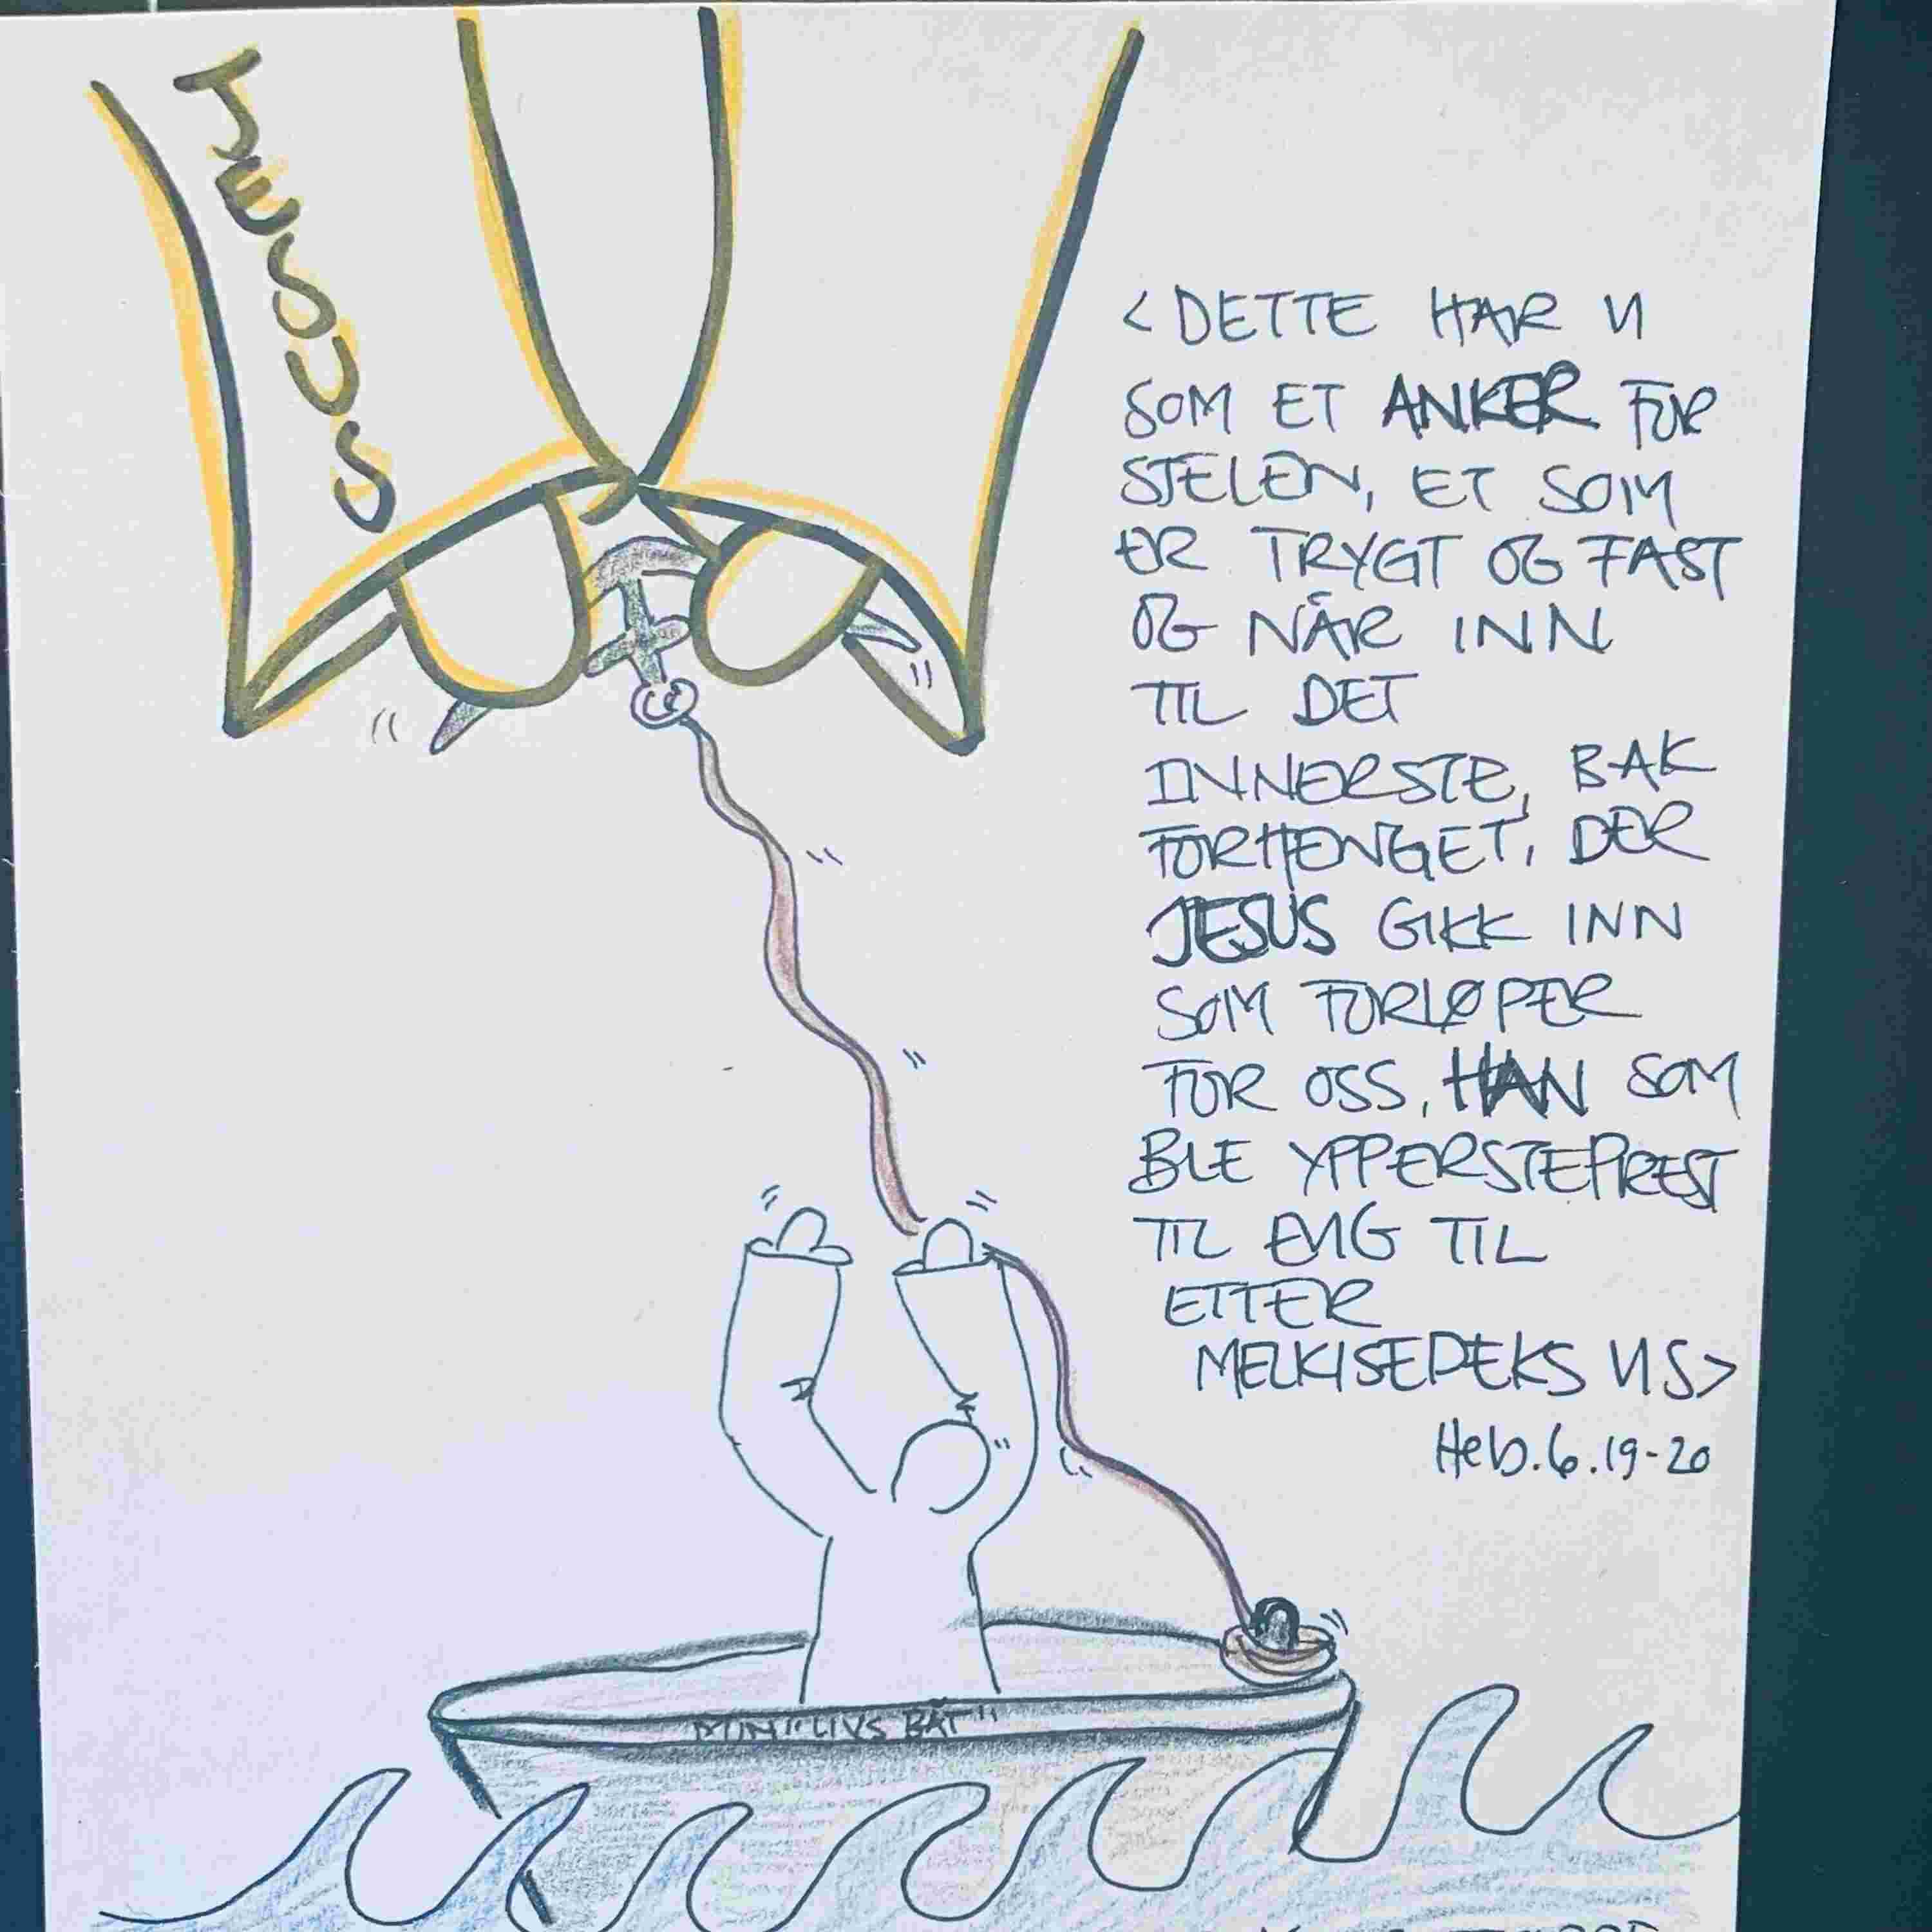 JESUS
<DETTE HAR VI
SOM ET ANKER FOR
SJELEN, ET SOM
ER TRYGT OG FAST
OG NÅR INN
TIL DET
INNERSTE, BAK
FORHENGET, DER
JESUS GIKK INN
SOM FORLØPER
FOR OSS, HAN SOM
BLE YPPERSTEPREST
TIL EVIG TIL
ETTER
MELKISEDEKS VIS>
Heb. 6. 19-20
MIN "LIVS BÅT"